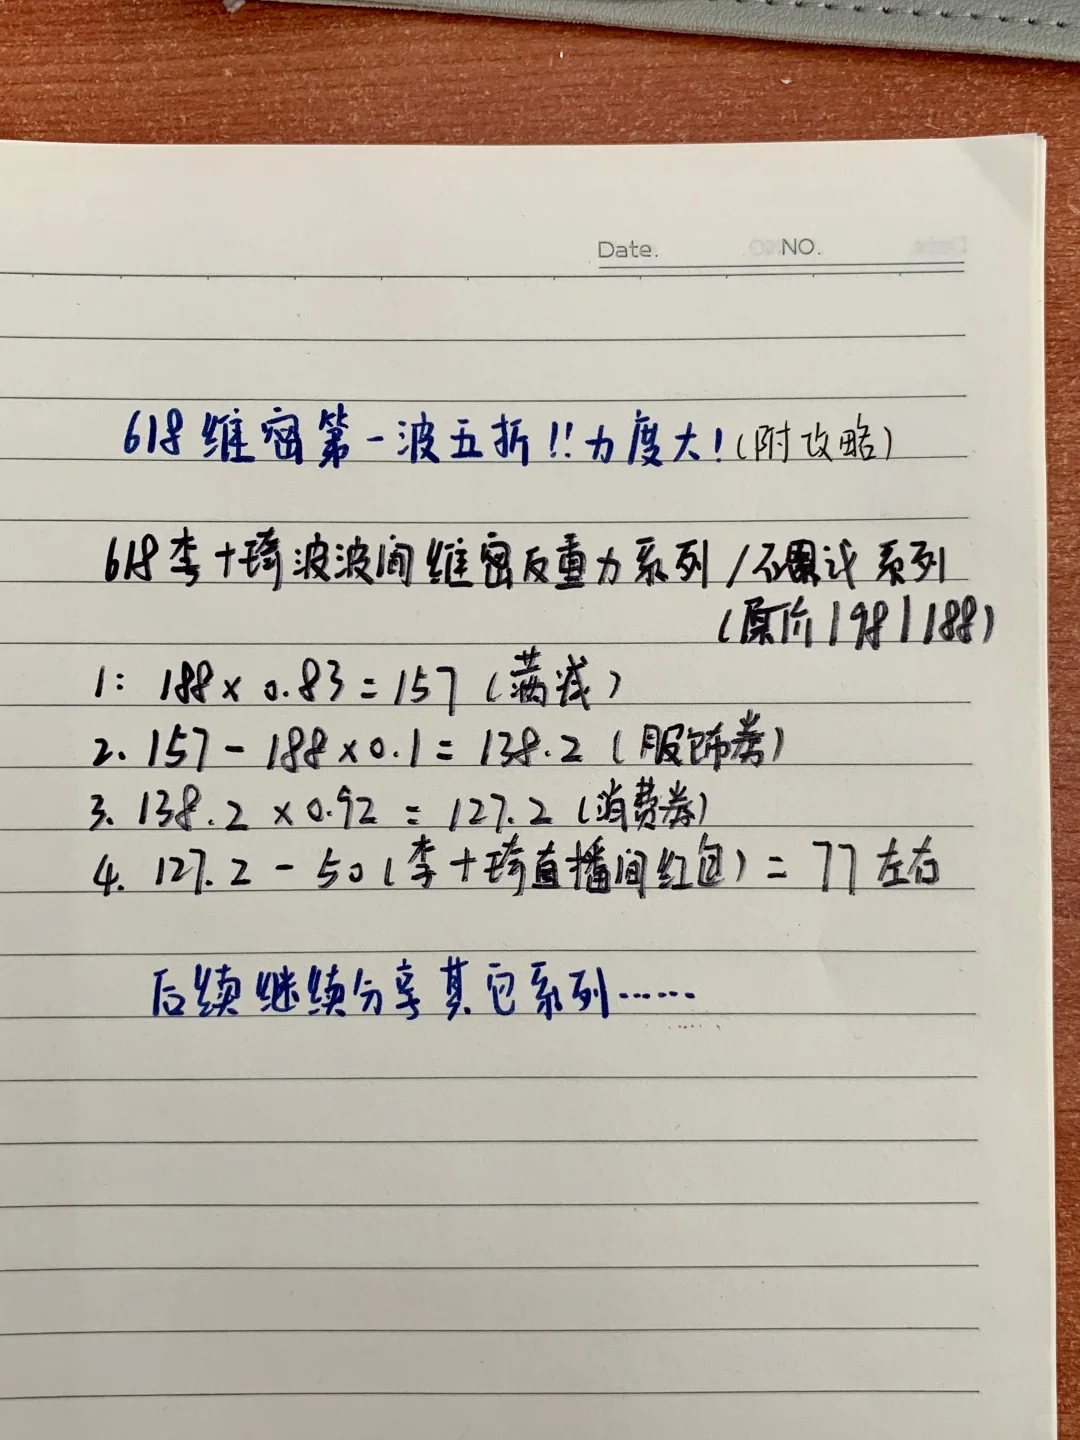 Date. NO.
618维密第一波五折!!力度大!(附攻略)
618李十琦波波间维密反重力系列/不累系列
(原价198|188)
1: 188×0.83=157(满减)
2. 157-188×0.1=138.2(服饰券)
3. 138.2×0.92=127.2(消费券)
4. 127.2-50(李十琦直播间红包)=77左右
后续继续分享其它系列……